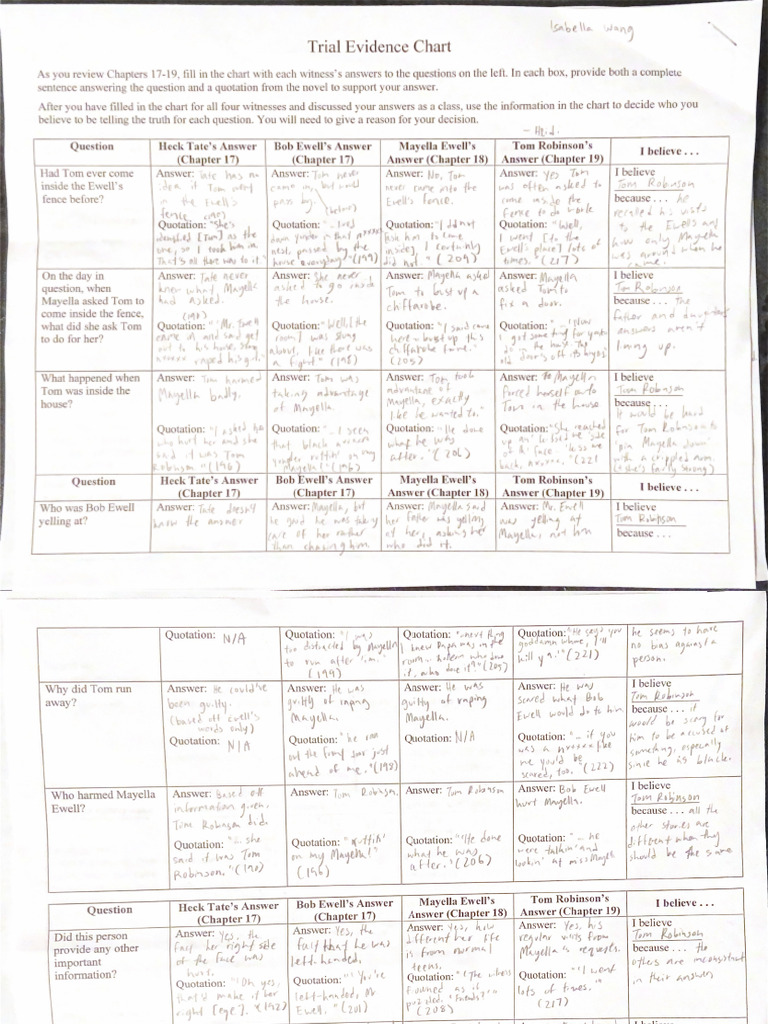 Isabella Wang
Trial Evidence Chart
As you review Chapters 17-19, fill in the chart with each witness's answers to the questions on the left. In each box, provide both a complete
sentence answering the question and a quotation from the novel to support your answer.
After you have filled in the chart for all four witnesses and discussed your answers as a class, use the information in the chart to decide who you
believe to be telling the truth for each question. You will need to give a reason for your decision.
Question
Heck Tate's Answer
(Chapter 17)
Bob Ewell's Answer
(Chapter 17)
Mayella Ewell's
Answer (Chapter 18)
Tom Robinson's
Answer (Chapter 19)
I believe . . .
Had Tom ever come
inside the Ewell's
fence before?
Answer: Tate has no
idea if Tom went
in the Ewell's
fence.
Quotation: "She's
as the
one, so I took him in.
That's all there was to it."
Answer: Tom never
came in, but would
pass by.
(before)
Quotation:
passed by the
house everyday" (199)
Answer: No, Tom
never came into the
Ewell's fence.
Quotation: "I did not
ask him to come
inside, I certainly
did not." (209)
Answer: Yes Tom
was often asked to
come inside the
fence to do work
Quotation: "Well,
I went t'to the
Ewell's place lots of
times." (217)
I believe
Tom Robinson
because . . . he
recalled his visits
to the Ewells and
how only Mayella
was around when he
came.
On the day in
question, when
Mayella asked Tom to
come inside the fence,
what did she ask Tom
to do for her?
Answer: Tate never
knew what Mayella
had asked.
Quotation: "Mr. Ewell
came in and said get
out to his house,
raped his girl."
Answer: She never
asked to go inside
the house.
Quotation: "Well, the
room I was
about, like there was
a fight" (198)
Answer: Mayella asked
Tom to bust up a
chiffarobe.
Quotation: "I said come
here bust up this
chiffarobe for me."
(205)
Answer: Mayella
asked Tom to
fix a door.
Quotation:
I got something for you to
do in the house. The
old door's off its hinges"
I believe
Tom Robinson
because . . . The
father and daughter's
answers aren't
lining up.
What happened when
Tom was inside the
house?
Answer: Tom harmed
Mayella badly.
Quotation: "I asked her
who hurt her and she
said it was Tom
Robinson" (196)
Answer: Tom was
taking advantage
of Mayella.
Quotation: "... I seen
that black
yonder ruttin' on my
Mayella!" (196)
Answer: Tom took
advantage of
Mayella, exactly
like he wanted to."
Quotation: "He done
what he was
after." (206)
Answer: Mayella
forced herself onto
Tom in the house
Quotation: "She reached
up an' kissed me side
of th' face. 'kiss me
back, (221
I believe
Tom Robinson
because . . .
it would be hard
for Tom Robinson to
pin Mayella down
with a crippled arm
(& she's fairly strong)
Question
Heck Tate's Answer
(Chapter 17)
Bob Ewell's Answer
(Chapter 17)
Mayella Ewell's
Answer (Chapter 18)
Tom Robinson's
Answer (Chapter 19)
I believe . . .
Who was Bob Ewell
yelling at?
Answer: Tate doesn't
know the answer
Answer: Mayella, but
he said he was taking
care of her rather
than chasing him
Answer: Mayella said
her father was yelling
at her, asking her
who did it.
Answer: Mr. Ewell
was yelling at
Mayella, not him
I believe
Tom Robinson
because . . .
Quotation: N/A
Quotation: "I was
too distracted by Mayella
to run after 'im."
(199)
Quotation: "next thing
I knew Papa was in the
room hollerin who done
it, who done it" (205)
Quotation: "He says you
goddamn whore, I'll
kill ya." (221)
he seems to have
no bias against a
person.
Why did Tom run
away?
Answer: He could've
been guilty.
(based off Ewell's
words only)
Quotation: N/A
Answer: He was
guilty of raping
Mayella.
Quotation: "he run
out the front door just
ahead of me." (198)
Answer: He was
guilty of raping
Mayella.
Quotation: N/A
Answer: He was
scared what Bob
Ewell would do to him
Quotation: "... if you
was a like
me you'd be
scared, too." (222)
I believe
Tom Robinson
because . . . it
would be scary for
him to be accused of
something, especially
since he is black.
Who harmed Mayella
Ewell?
Answer: Based off
information given,
Tom Robinson did.
Quotation: "... she
said it was Tom
Robinson."
Answer: Tom Robinson.
Quotation: "ruttin'
on my Mayella!"
(196)
Answer: Tom Robinson
Quotation: "He done
what he was
after." (206)
Answer: Bob Ewell
hurt Mayella.
Quotation: "... he
were talkin' and
lookin' at miss Mayella
I believe
Tom Robinson
because . . . all the
other stories are
different when they
should be the same
Question
Heck Tate's Answer
(Chapter 17)
Bob Ewell's Answer
(Chapter 17)
Mayella Ewell's
Answer (Chapter 18)
Tom Robinson's
Answer (Chapter 19)
I believe . . .
Did this person
provide any other
important
information?
Answer: Yes, the
fact her right side
of the face was
hurt.
Quotation: "Oh yes,
that'd make it her
right [eye]." (192)
Answer: Yes, the
fact that he was
left-handed.
Quotation: "You're
left-handed, Mr
Ewell." (201)
Answer: Yes, how
different her life
is from normal
teens.
Quotation: "The witness
frowned as if
puzzled. 'Friends?'"
(208)
Answer: Yes, his
regular visits from
Mayella's requests.
Quotation: "I went
lots of times."
(217)
I believe
Tom Robinson
because . . . the
others are inconsistent
in their answers